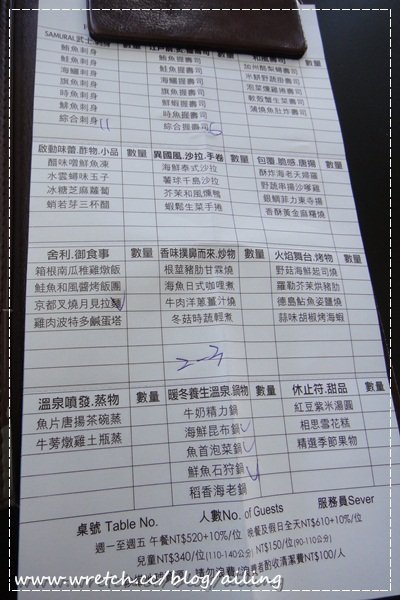 SAMURAI.武士 數量
鮪魚刺身
鮭魚刺身
海鱺刺身
旗魚刺身
時魚刺身
鯡魚刺身
綜合刺身 11
握壽司 數量
鮪魚握壽司
鮭魚握壽司
海鱺握壽司
旗魚握壽司
鮮蝦握壽司
時魚握壽司
綜合握壽司 6
和風壽司 數量
加州酪梨捲壽司
米餅野蔬甜壽司
泡菜燻雞捲壽司
軟殼蟹生菜壽司
蒲燒魚肚炸壽司
啟動味蕾.酢物.小品 數量
醋味噌鮮魚凍
水雲蟳味玉子
冰糖芝麻蘿蔔
蛸若芽三杯醋
異國風.沙拉.手卷 數量
海鮮泰式沙拉
薯球千島沙拉
芥茉和風燻鴨
蝦鬆生菜手捲
包覆.脆感.唐揚 數量
酥炸海老天婦羅
野蔬串揚沙嗲雞
銀鯛菲力東寺揚
香酥黃金麻糬燒
舍利.御食事 數量
箱根南瓜稚雞燉飯
鮭魚和風醬烤飯團
京都叉燒月見拉麵
雞肉波特多鹹蛋塔
香味撲鼻而來.炒物 數量
根莖豬肋甘霖燒
海魚日式咖哩煮
牛肉洋蔥薑汁燒
冬菇時蔬輕煮
火焰舞台.烤物 數量
野菇海鮮起司燒
羅勒芥茉烘豬肋
德島鮎魚姿鹽燒
蒜味胡椒烤海蝦
溫泉噴發.蒸物 數量
魚片唐揚茶碗蒸
牛蒡燉雞土瓶蒸
暖冬養生溫泉.鍋物 數量
牛奶精力鍋
海鮮昆布鍋
魚首泡菜鍋
鮮魚石狩鍋
稻香海老鍋
休止符.甜品 數量
紅豆紫米湯圓
相思雪花糕
精選季節果物
桌號 Table No. 人數No. of Guests 服務員Sever
週一至週五 午餐NT$520+10%/位 晚餐及假日全天NT$610+10%/位
兒童NT$340/位(110-140公分) NT$150/位(90-110公分)
請勿浪費 酌收清潔費NT$100/人
www.wretch.cc/blog/ailing